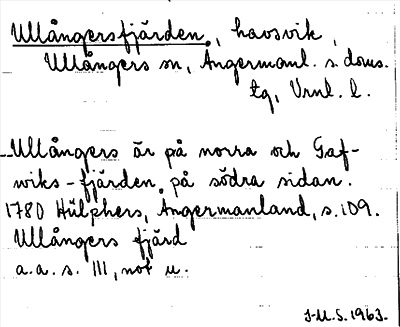 Ullångersfjärden, havsvik,
Ullångers sn, Ångermanl. s. doms.
tg, Vrnl. l.
Ullångers är på norra och Gaf-
wiks-fjärden på södra sidan.
1780 Hülphers, Ångermanland, s. 109.
Ullångers fjärd
a.a. s. 111, not u.
J-M.S. 1963.